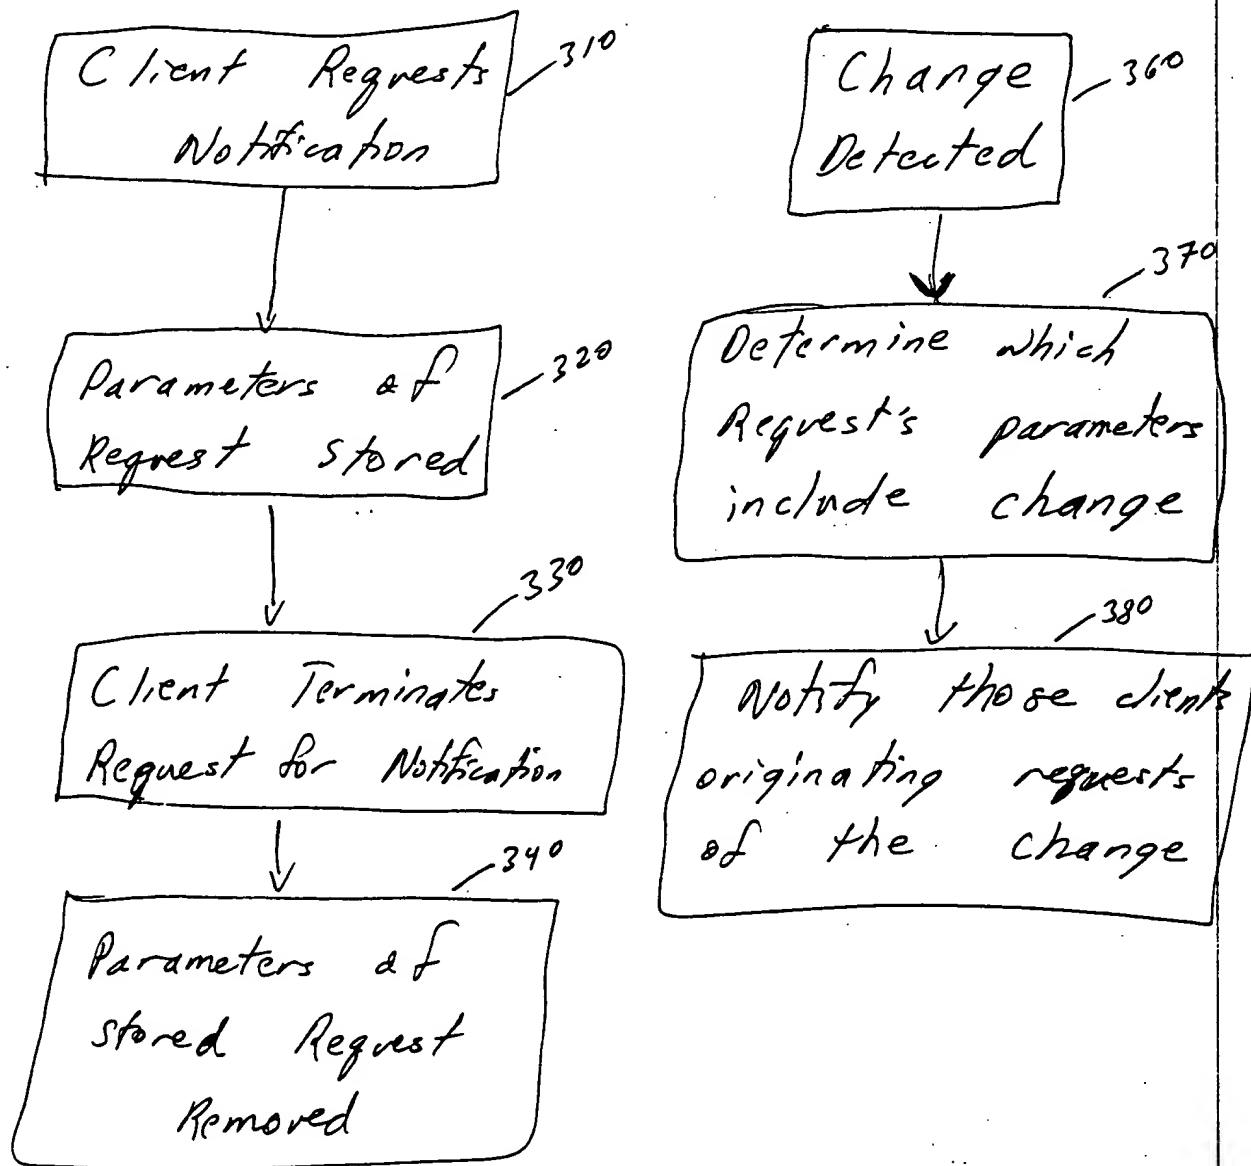 Client Requests
Notification
310
Parameters of
Request stored
320
330
Client Terminates
Request for Notification
340
Parameters of
stored Request
Removed
Change
Detected
360
370
Determine which
Request's parameters
include change
380
Notify those clients
originating requests
of the change